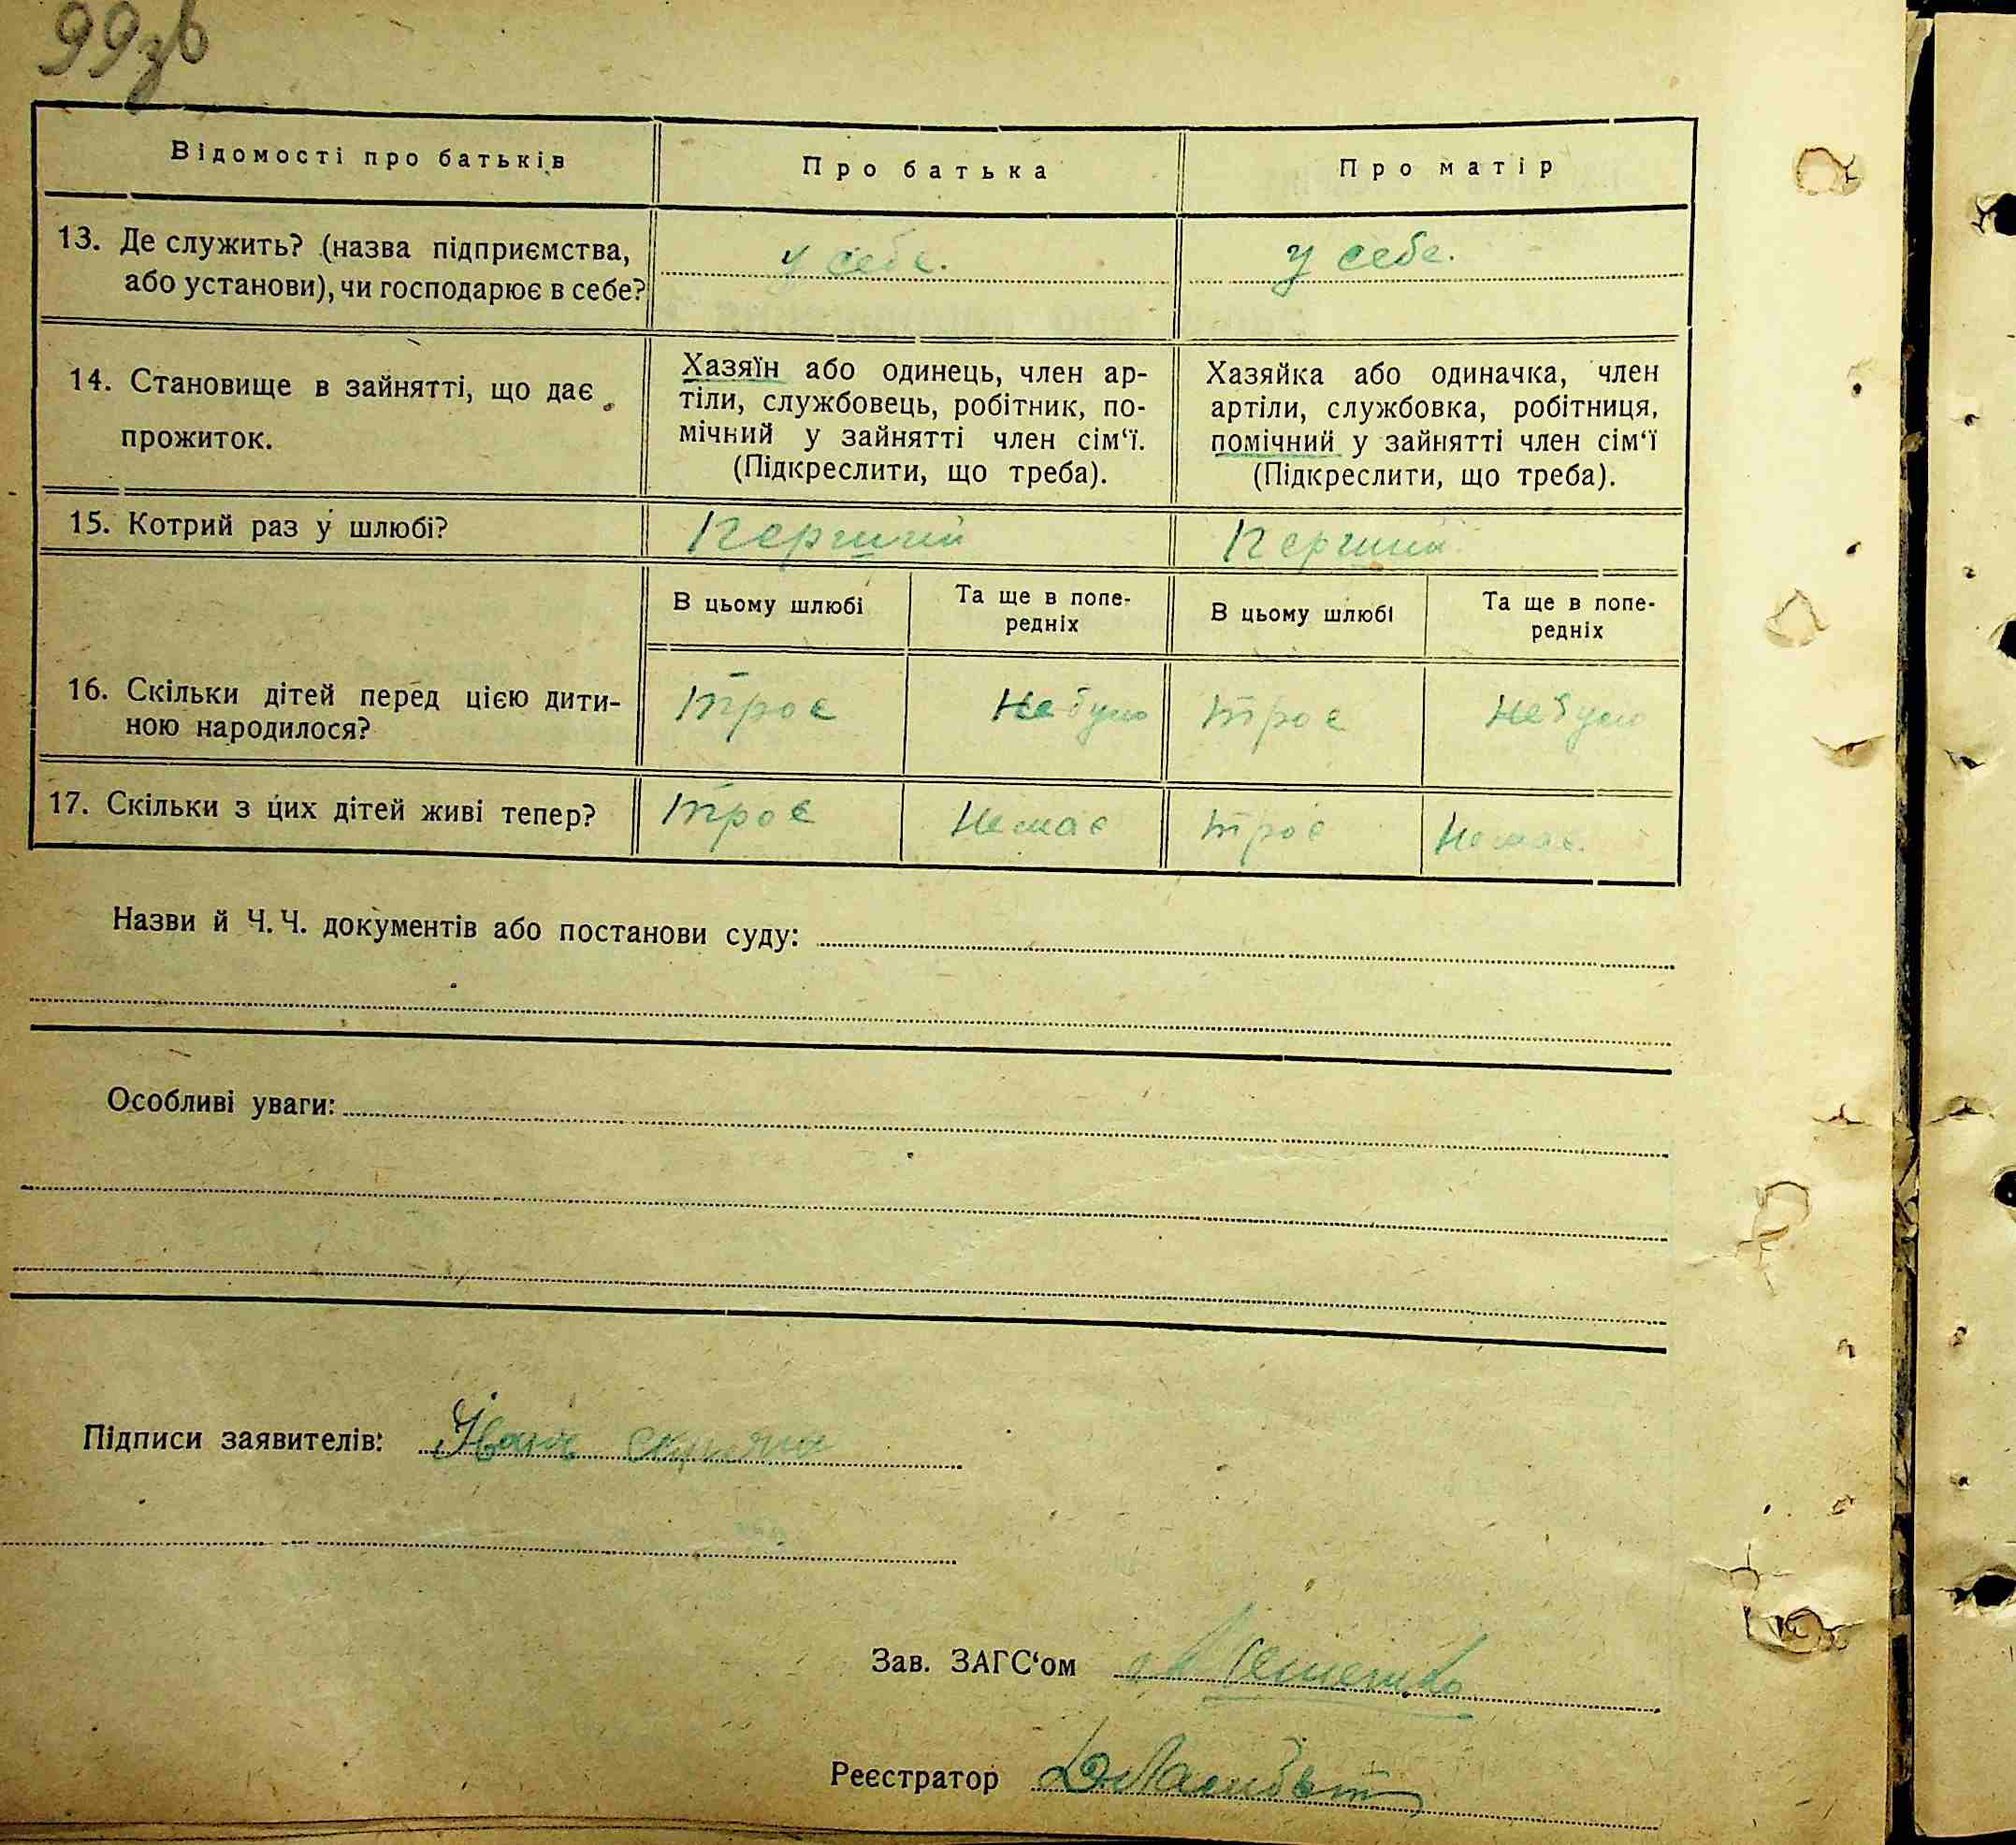 99зв
Відомості про батьків
Про батька
Про матір
13. Де служить? (назва підприємства,
або установи), чи господарює в себе?
у себе.
у себе.
14. Становище в зайнятті, що дає
прожиток.
Хазяїн або одинець, член ар-
тіли, службовець, робітник, по-
мічний у зайнятті член сім‘ї.
(Підкреслити, що треба).
Хазяйка або одиначка, член
артіли, службовка, робітниця,
помічний у зайнятті член сім‘ї
(Підкреслити, що треба).
15. Котрий раз у шлюбі?
Перший
Перший
В цьому шлюбі
Та ще в попе-
редніх
В цьому шлюбі
Та ще в попе-
редніх
16. Скільки дітей перед цією дити-
ною народилося?
троє
Не було
троє
Не було
17. Скільки з цих дітей живі тепер?
троє
Немає
троє
Немає.
Назви й Ч. Ч. документів або постанови суду:
Особливі уваги:
Підписи заявителів:
Зав. ЗАГС‘ом
Реєстратор